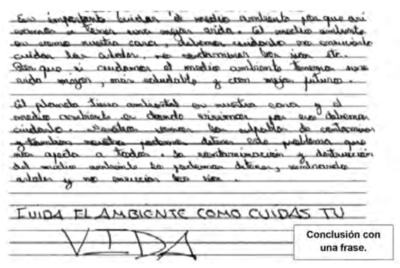 Es importante cuidar el medio ambiente por que asi
vamos a tener una mejor vida. El medio ambiente
es como nuestra casa, debemos cuidarlo no
cuidar los arboles, no contaminar los etc.
Por que si cuidamos el medio ambiente tenemos una
vida mejor, más saludable y con mejor futuro.
El planeta tierra ambiental es nuestra casa y el
medio ambiente es donde vivimos por eso debemos
cuidarlo. Nosotros somos los culpables de contaminar
y tambien nosotros podemos detener este problema que
nos a todos. La contaminación y destrucción
del medio ambiente la podemos detener, sembrando
arboles y no los rios.
CUIDA EL AMBIENTE COMO CUIDAS TU
VIDA
Conclusión con
una frase.